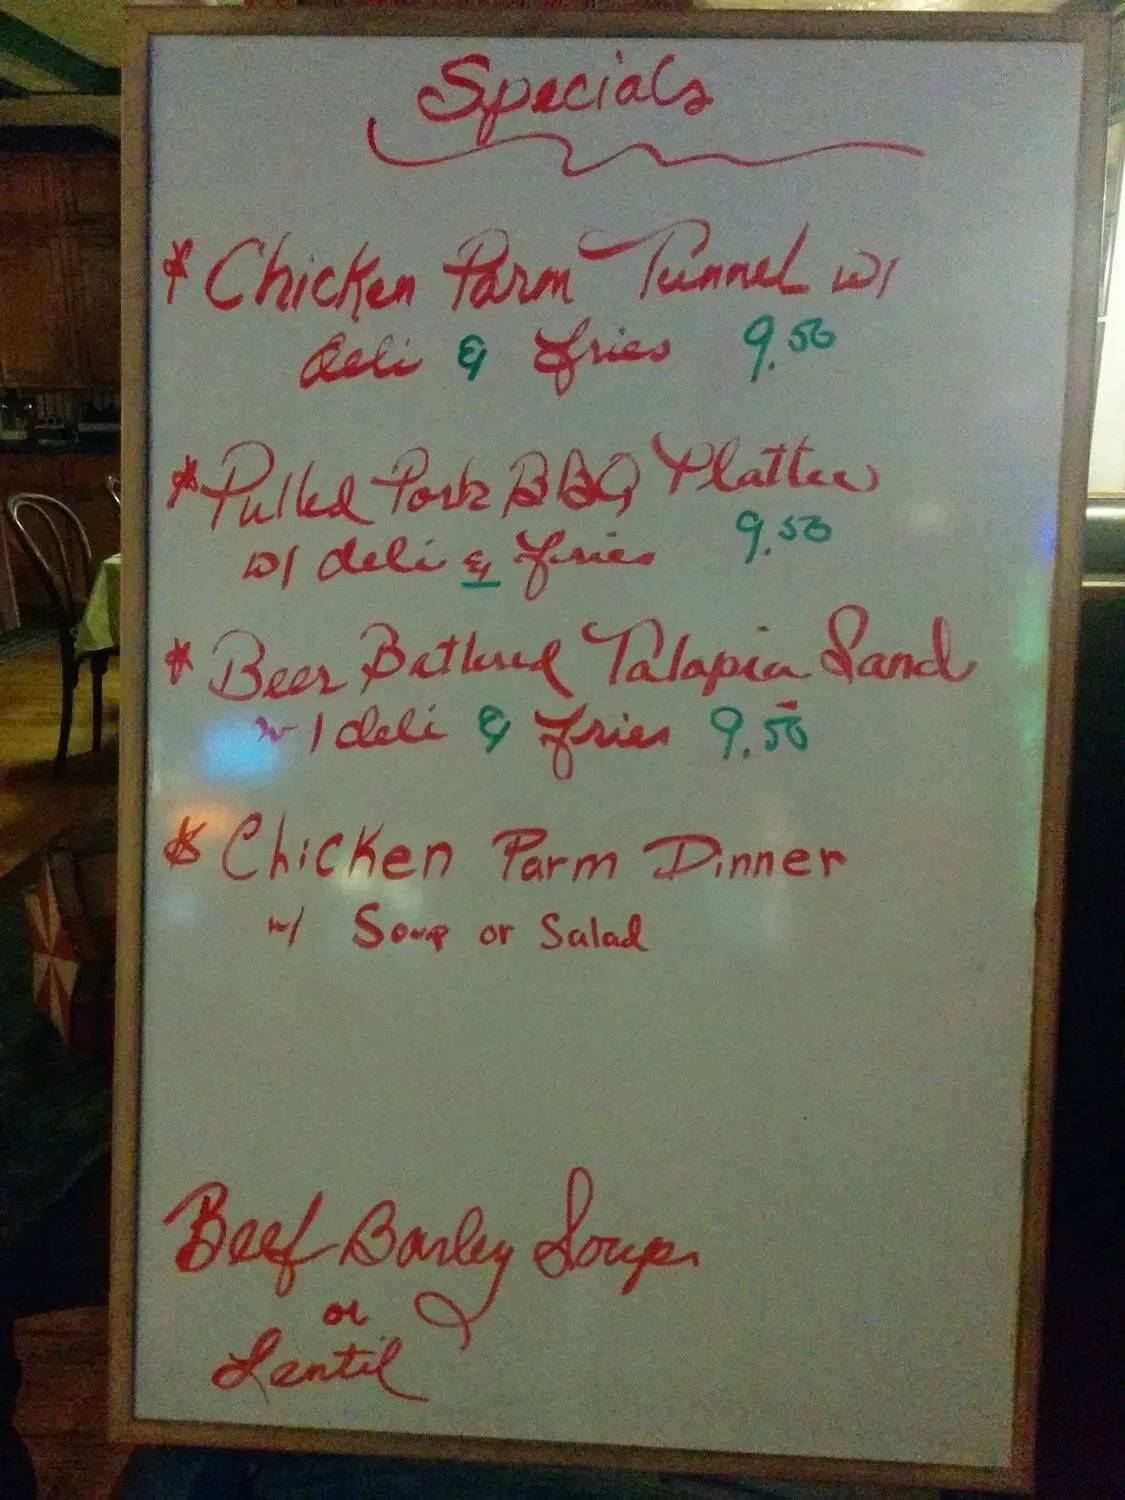 Specials
* Chicken Parm Tunnel w/
deli & fries 9.50
* Pulled Pork BBQ Platter
w/ deli & fries 9.50
* Beer Battered Talapia Sand
w/ deli & fries 9.50
* Chicken Parm Dinner
w/ Soup or Salad
Beef Barley Soup
or
Lentil